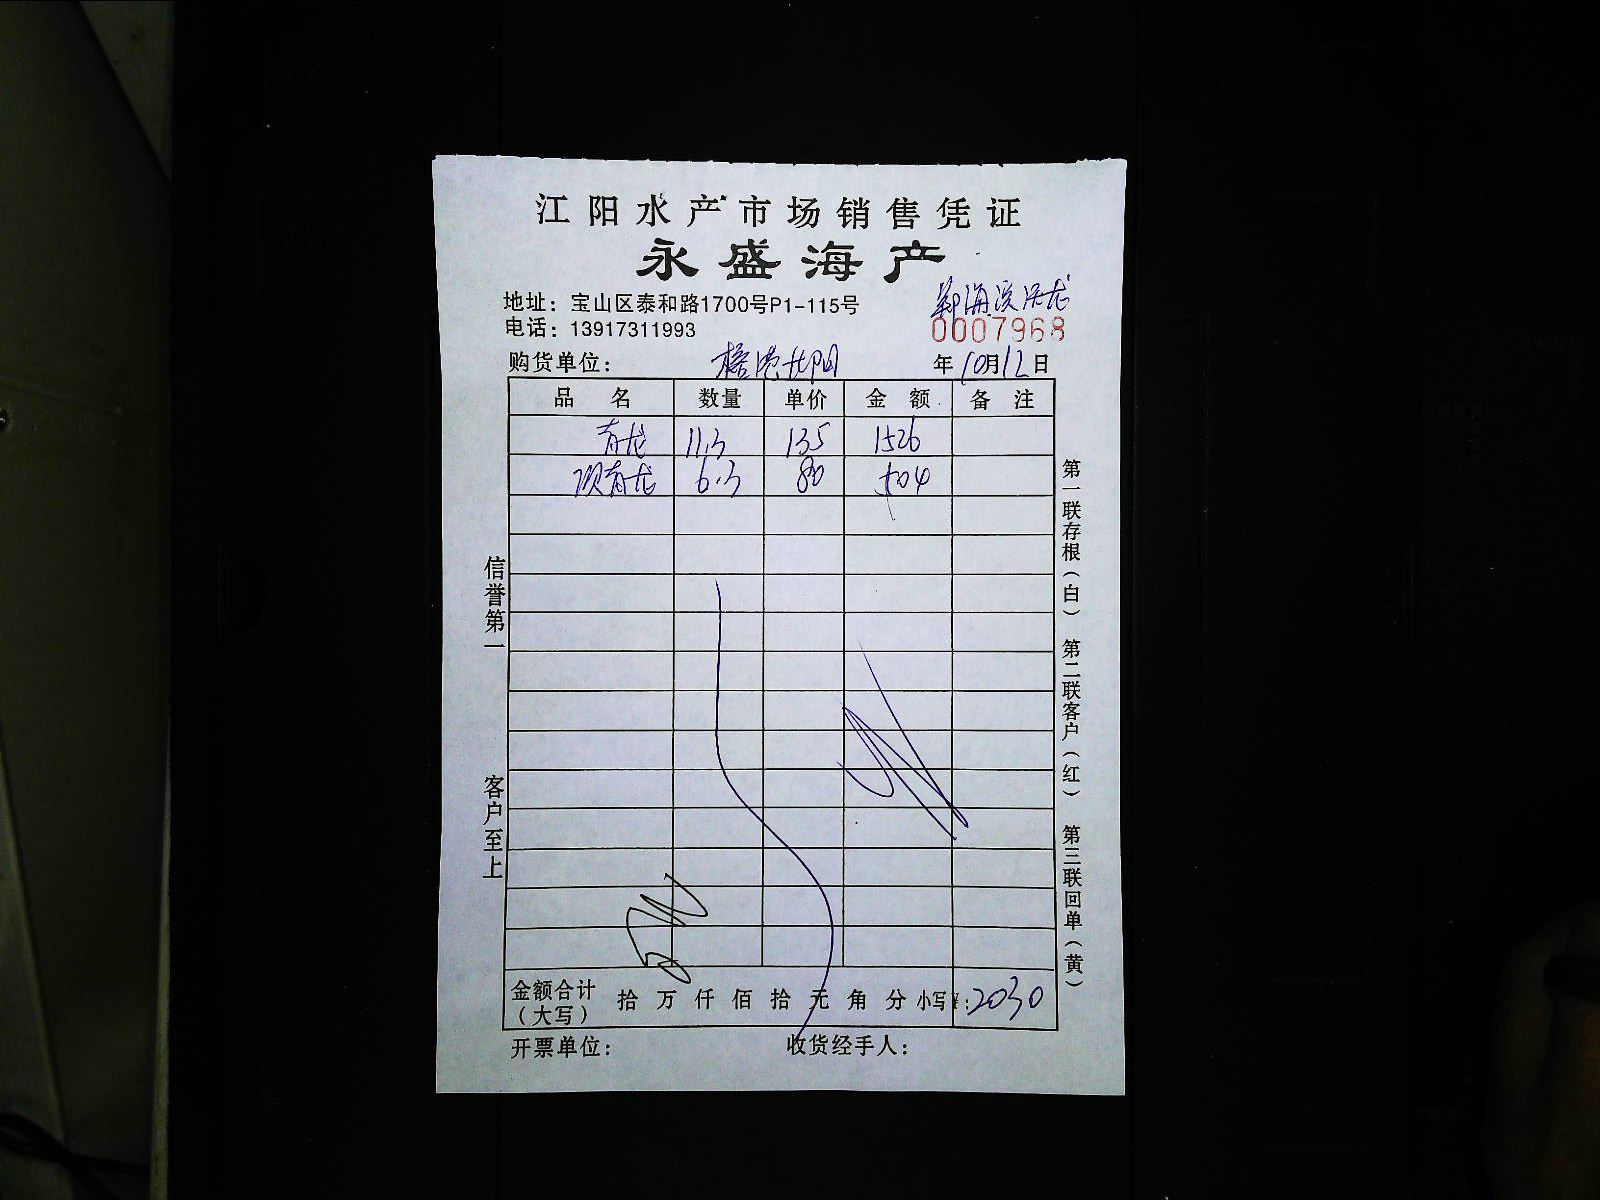 江阳水产市场销售凭证
永盛海产
地址：宝山区泰和路1700号P1-115号
电话：13917311993
0007968
购货单位： 年10月12日
品名 数量 单价 金额 备注
青龙 11.3 135 1526
青龙 6.3 80 504
信誉第一
客户至上
第一联存根（白） 第二联客户（红） 第三联回单（黄）
金额合计（大写） 拾 万 仟 佰 拾 元 角 分 小写¥:2030
开票单位： 收货经手人：